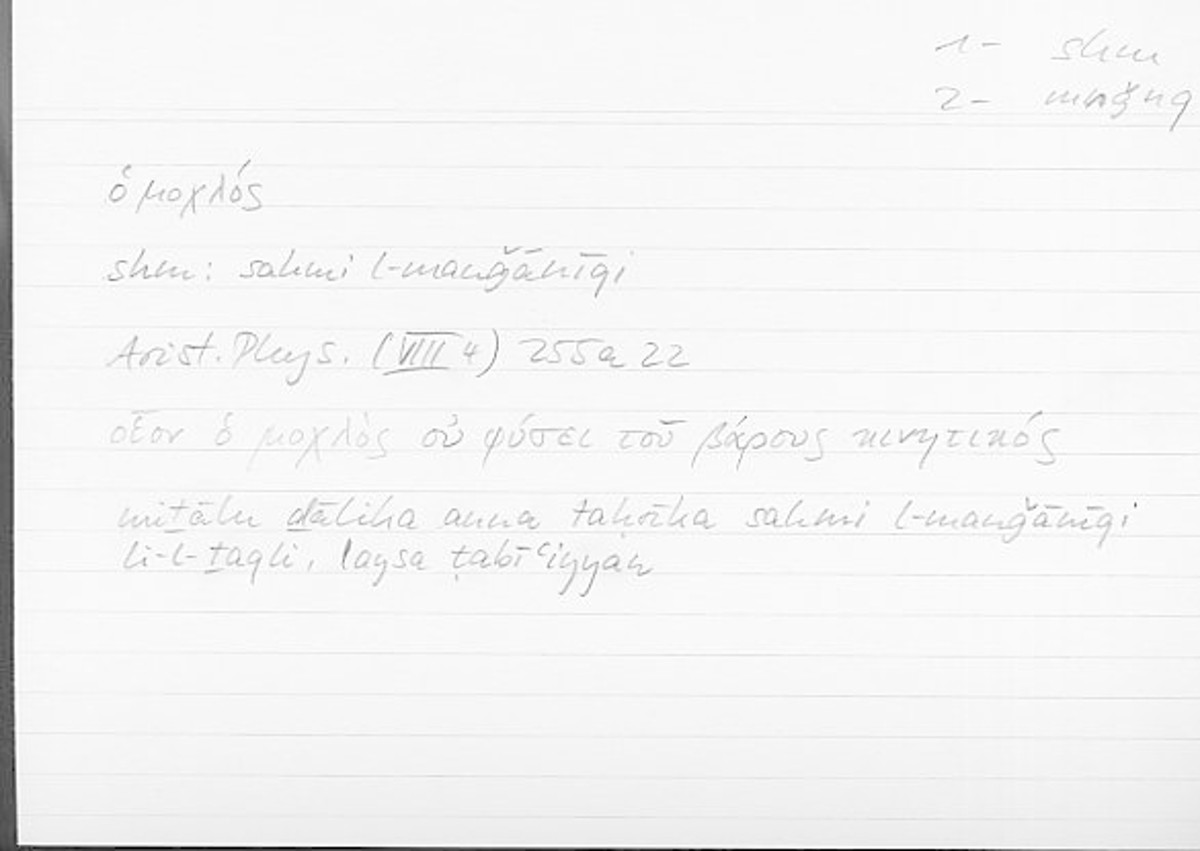 1- shm
2- mnǧnq
ὁ μοχλός
shm: sahmi l-manǧānīqi
Arist. Phys. (VIII 4) 255a 22
οἷον ὁ μοχλὸς οὐ φύσει τοῦ βάρους κινητικός
miṯālu ḏālika anna taḥrīka sahmi l-manǧānīqi
li-l-ṯaqli, laysa ṭabīʿiyyan